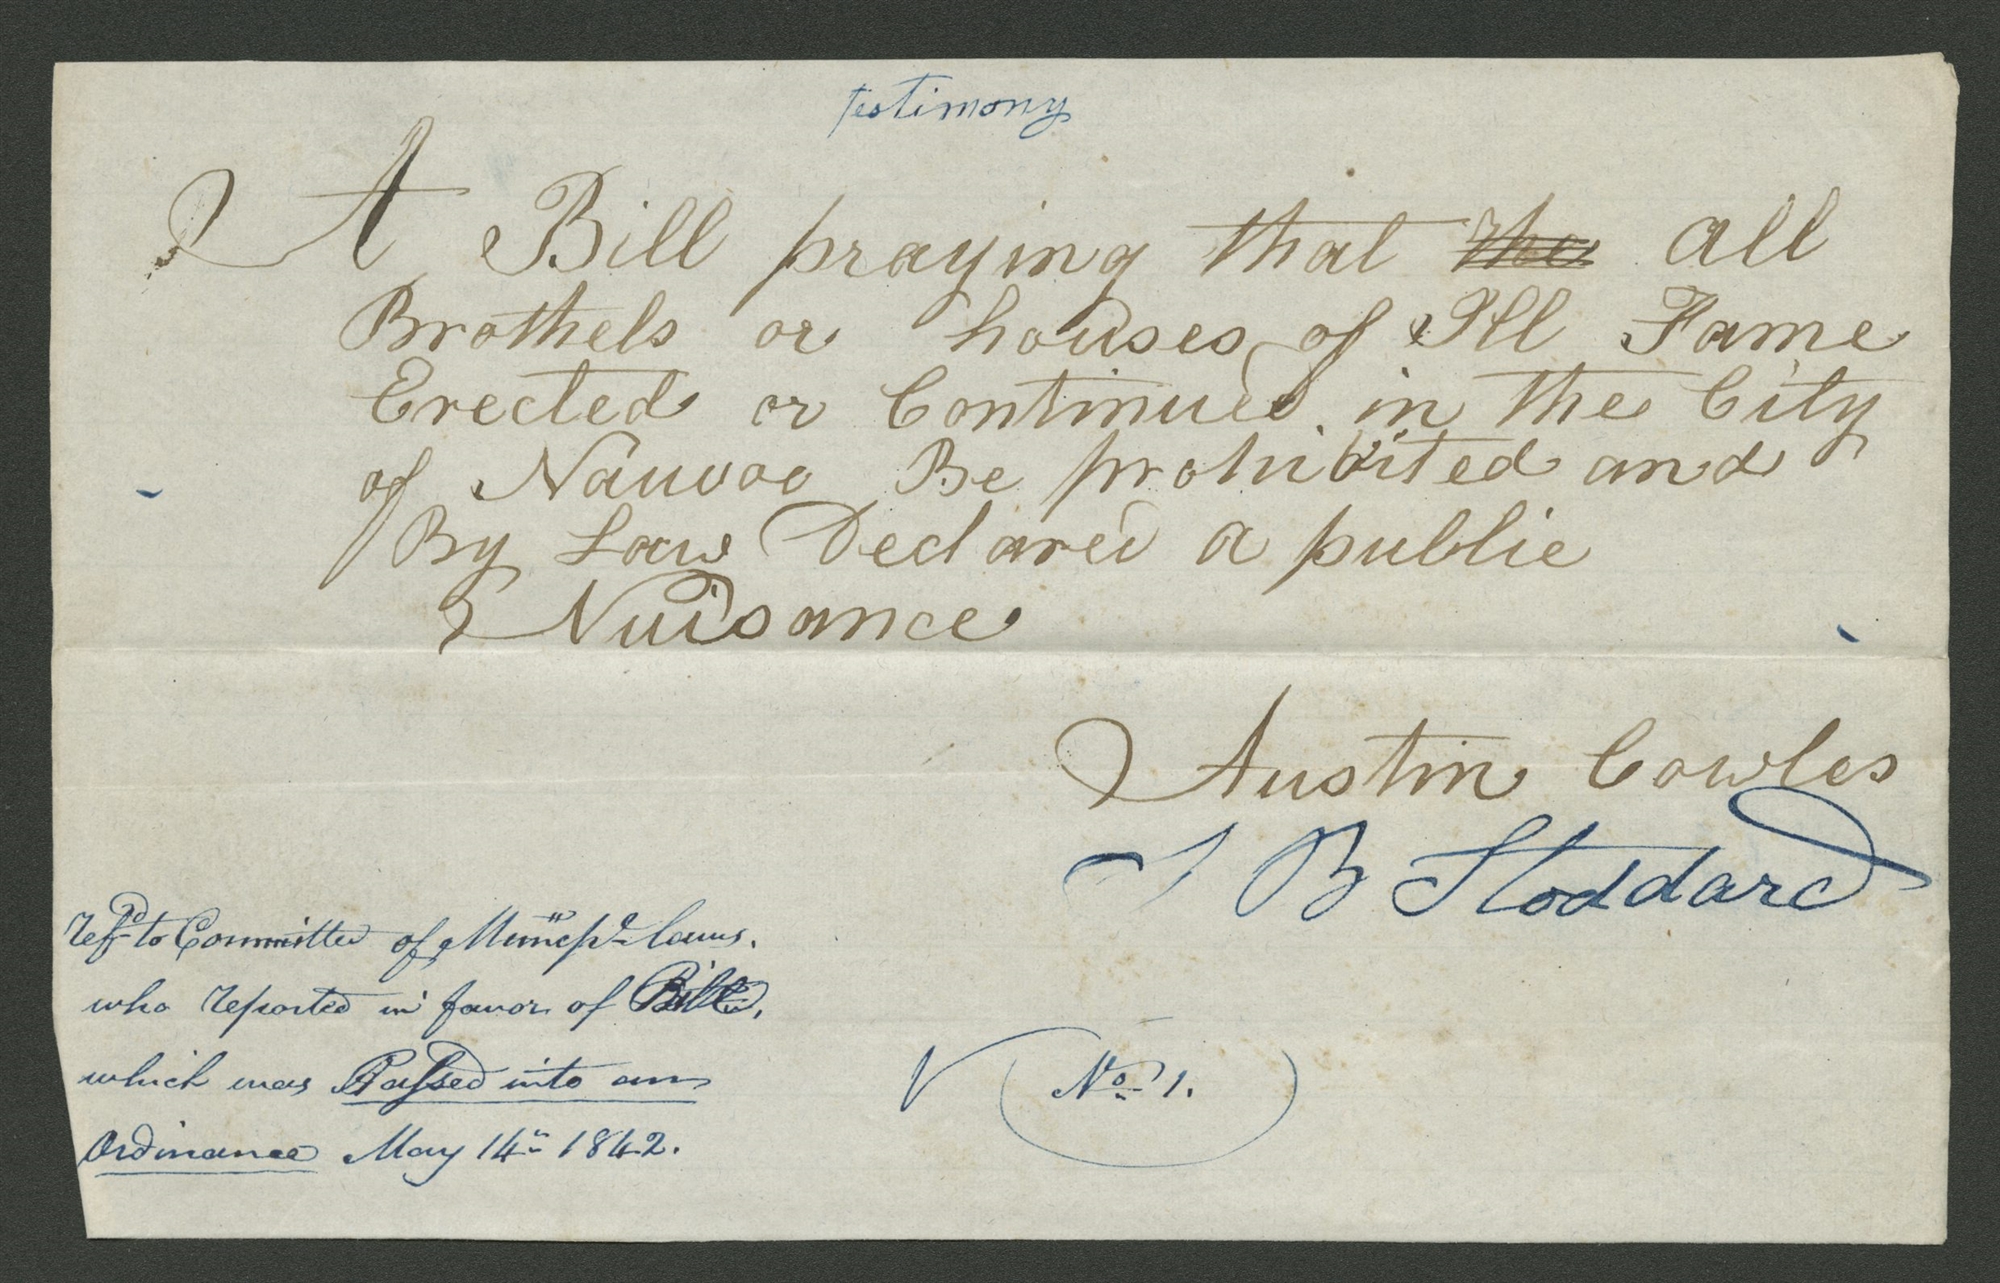 testimony
A Bill praying that the all
Brothels or houses of Ill Fame
Erected or Continued in the City
of Nauvoo Be prohibited and
By Law Declared a public
Nuisance
Austin Cowles
B Stoddard
refd. to Committee of Municpl. laws.
who reported in favor of Bill,
which was Passed into an
Ordinance May 14th 1842.
No. 1.